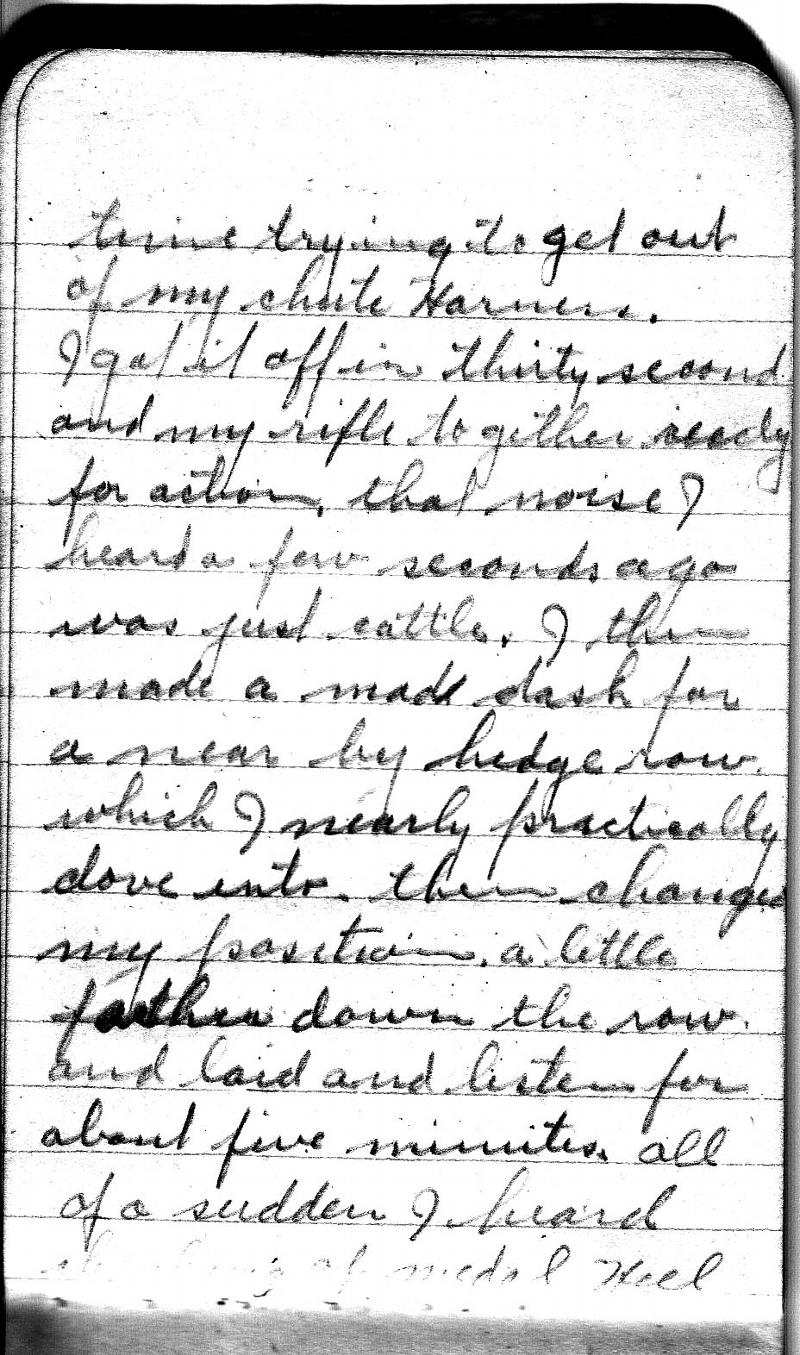 time trying to get out
of my chute Harness.
I got it off in thirty second
and my rifle to gether ready
for action, that noise I
heard a few seconds ago
was just cattle. I then
made a mad dash for
a near by hedge row.
which I nearly practically
dove into. then changed
my position. a little
farther down the row.
and laid and listen for
about five minutes. all
of a sudden I heard
of medal Heel